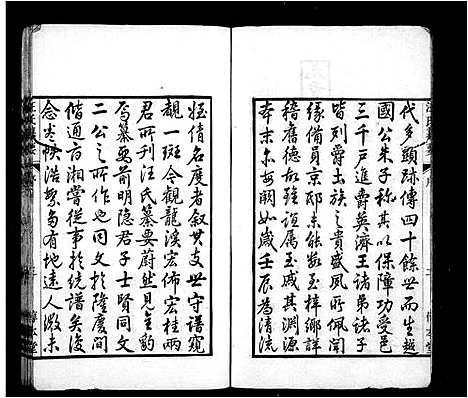 代多顯跡傳四十餘世而生越
國公朱子稱其以保障功受邑
三千戶進爵英濟王諸弟諸子
皆列爵土族之貴盛夙所佩聞
緣備員京邸未能敬至梓鄉詳
稽舊德故雖誼属玉戚其淵源
本末未每如嵗壬辰為清流
姪倩名度者叙其支世守譜窺
覩一斑今觀龍溪宏佈宏桂兩
君所刊汪氏纂要蔚然見全豹
焉纂要前明隐君子士貢同文
二公之所作也同文於隆慶間
偕適方湘嘗從事於統譜矣後
念帙浩勢多有地遠人微未